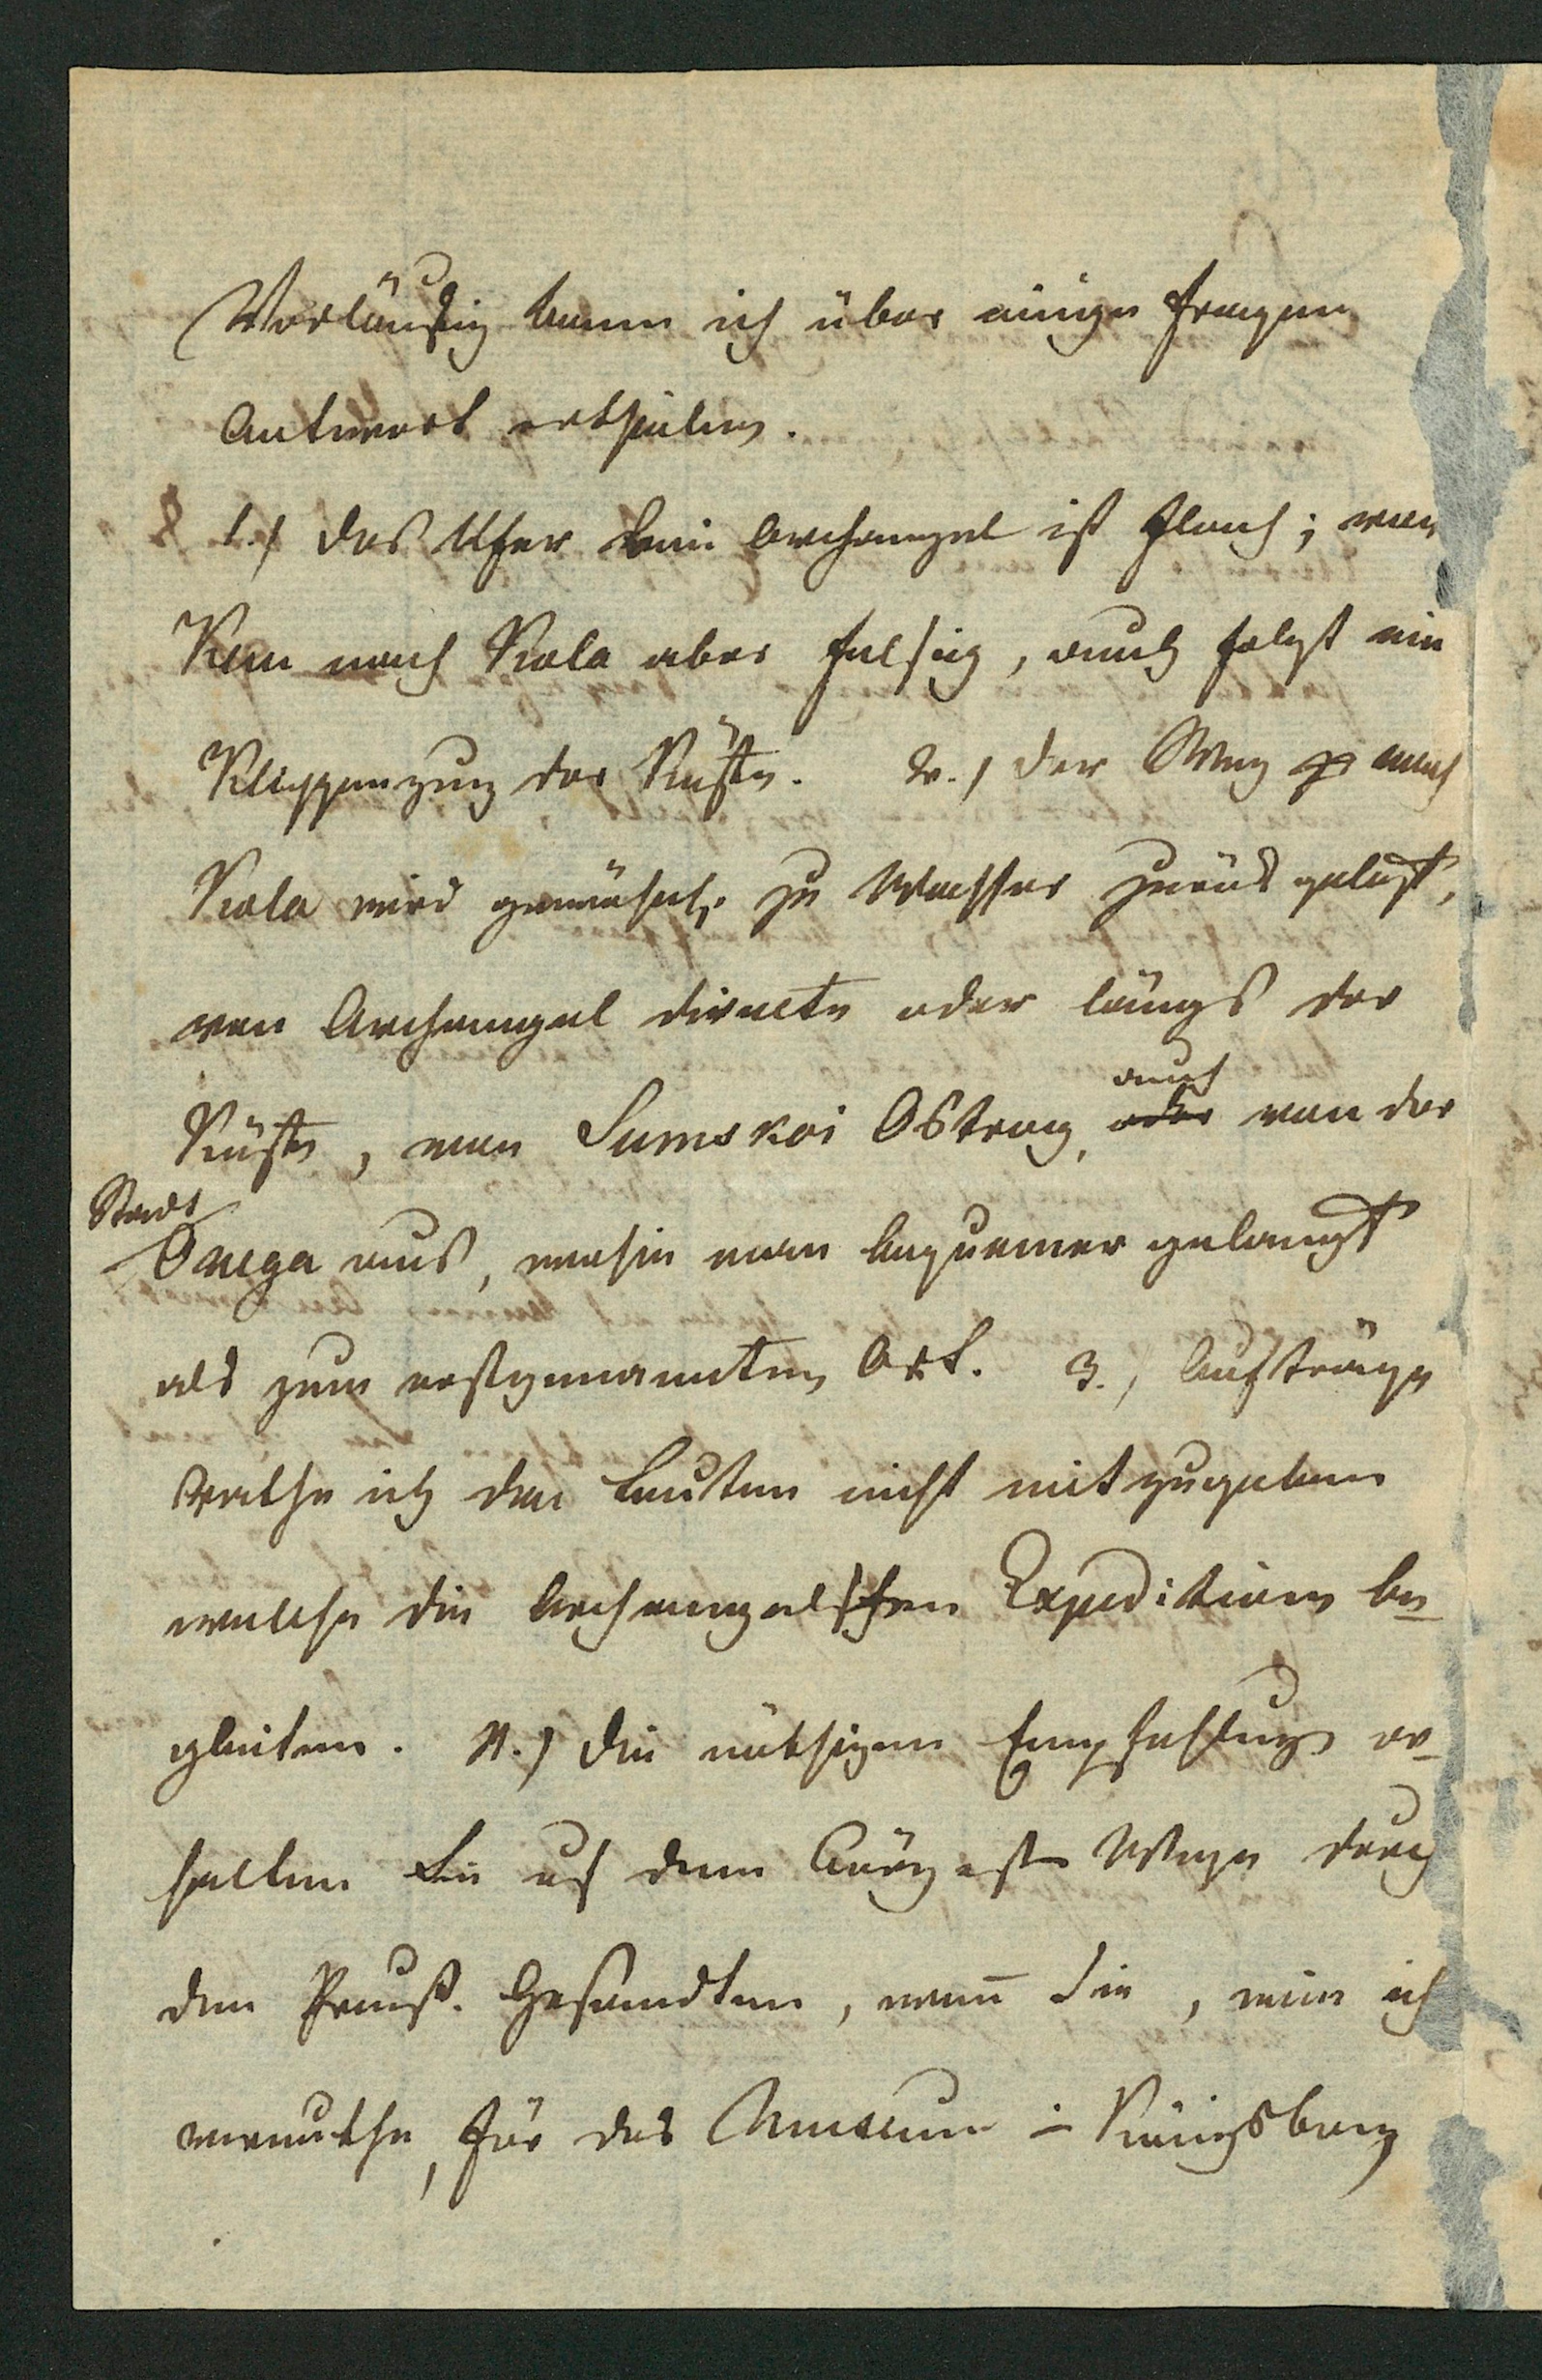 Vorläufig kann ich über einige Fragen
Antwort ertheilen.
1.) das Ufer bei Archangel ist flach; von
Kem nach Kola aber felsig, auch folgt ein
Klippenzug der Küste. 2.) der Weg nach
Kola wird gewöhnl. zu Wasser zurückgelegt,
von Archangel directe oder längs der
Küste, von Sumskoi Ostrog, oder auch von der
Stadt Onega aus, wohin man bequemer gelangt
als zum erstgenannten Ort. 3.) Aufträge
rathe ich den Leuten nicht mitzugeben
welche die Archangelschen Expedition be-
gleiten. 4.) die nöthigen Empfehlung er-
halten Sie uf dem kürzesten Wege durch
den Preuß. Gesandten, wenn Sie, wie ich
vermuthe, für das Museum in Königsberg